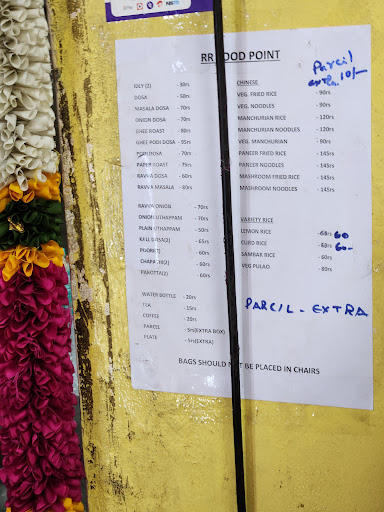 RR FOOD POINT
IDLY (2) - 30rs
DOSA - 50rs
MASALA DOSA - 70rs
ONION DOSA - 70rs
GHEE ROAST - 80rs
GHEE PODI DOSA - 95rs
PODI DOSA - 70rs
PAPER ROAST - 75rs
RAVVA DOSA - 60rs
RAVVA MASALA - 80rs
RAVVA ONION - 70rs
ONION UTHAPPAM - 70rs
PLAIN UTHAPPAM - 50rs
- 65rs
- 60rs
CHAPATHI(2) - 60rs
PAROTTA(2) - 60rs
WATER BOTTLE - 20rs
TEA - 15rs
COFFEE - 20rs
PARCEL - 5rs(EXTRA BOX)
PLATE - 5rs(EXTRA)
Parcil
extra 10/-
CHINESE
VEG. FRIED RICE - 90rs
VEG. NOODLES - 90rs
MANCHURIAN RICE - 120rs
MANCHURIAN NOODLES - 120rs
VEG. MANCHURIAN - 90rs
PANEER FRIED RICE - 145rs
PANEER NOODLES - 145rs
MASHROOM FRIED RICE - 145rs
MASHROOM NOODLES - 145rs
VARIETY RICE
LEMON RICE 60
CURD RICE 60-
SAMBAR RICE - 60rs
VEG PULAO - 80rs
PARCIL - EXTRA
BAGS SHOULD NOT BE PLACED IN CHAIRS